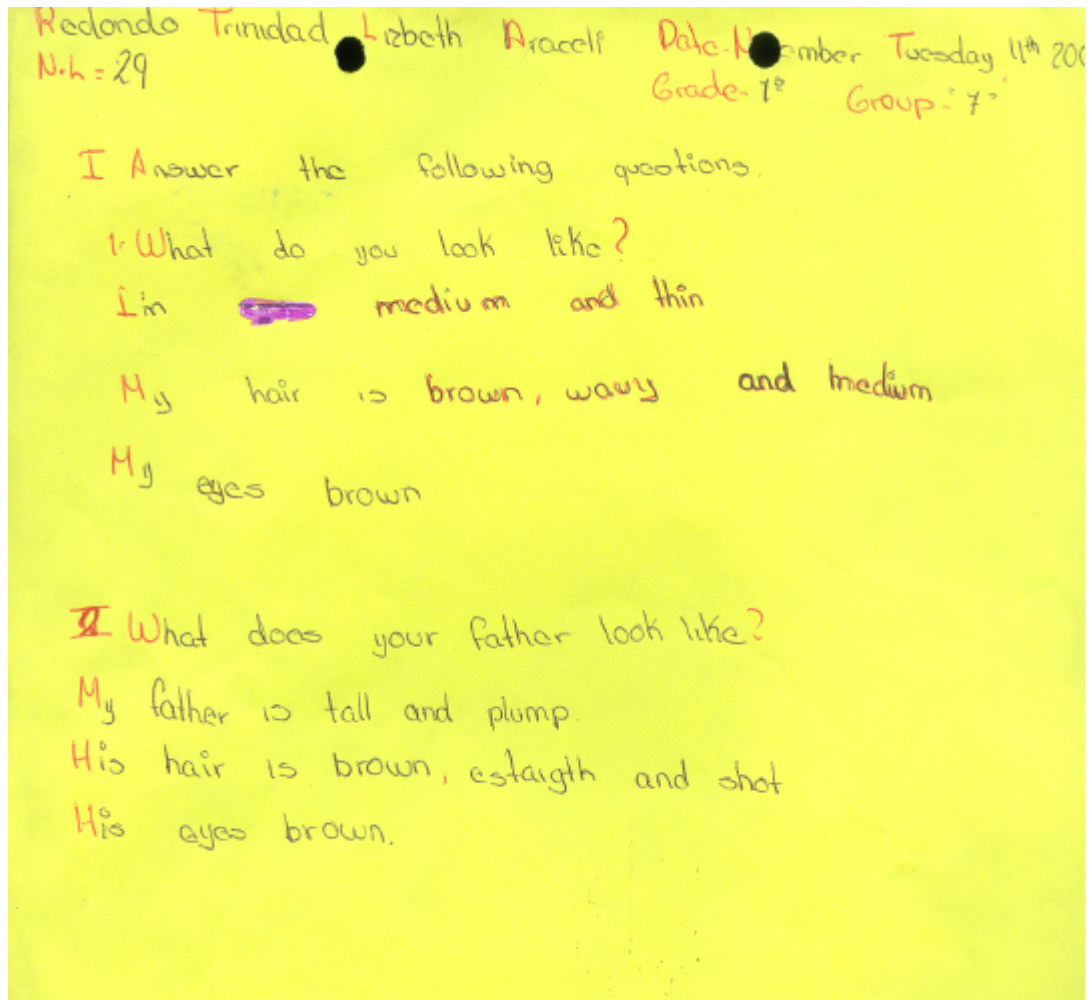 Redondo Trinidad Lizbeth Araceli Date-November Tuesday 11th 200
N.L = 29
Grade- 1° Group-"7"
I Answer the following questions.
1-What do you look like?
I'm medium and thin
My hair is brown, wavy and medium
My eyes brown
II What does your father look like?
My father is tall and plump.
His hair is brown, estaigth and shot
His eyes brown.